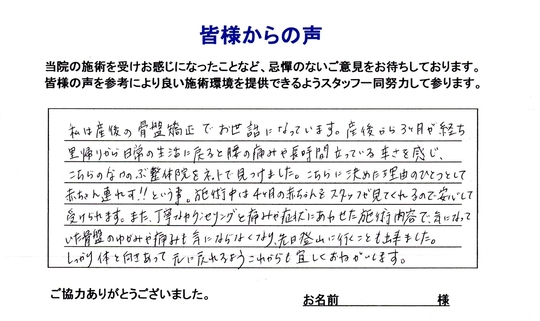 皆様からの声
当院の施術を受けお感じになったことなど、忌憚のないご意見をお待ちしております。
皆様の声を参考により良い施術環境を提供できるようスタッフ一同努力して参ります。
私は産後の骨盤矯正でお世話になっています。産後から3ヶ月が経ち
里帰りから日常の生活に戻ると腰の痛みや長時間立っている辛さを感じ、
こちらのなのぶ整体院をネットで見つけました。こちらに決めた理由のひとつとして
赤ちゃん連れず!!という事。施術中は4ヶ月の赤ちゃんをスタッフが見てくれるので安心して
受けられます。また、丁寧なカウンセリングと痛みや症状にあわせた施術内容で、気になって
いた骨盤のゆがみや痛みも気にならなくなり、先日登山に行くことも出来ました。
しっかり体と向きあって元に戻れるようこれからも宜しくおねがいします。
ご協力ありがとうございました。
お名前 様